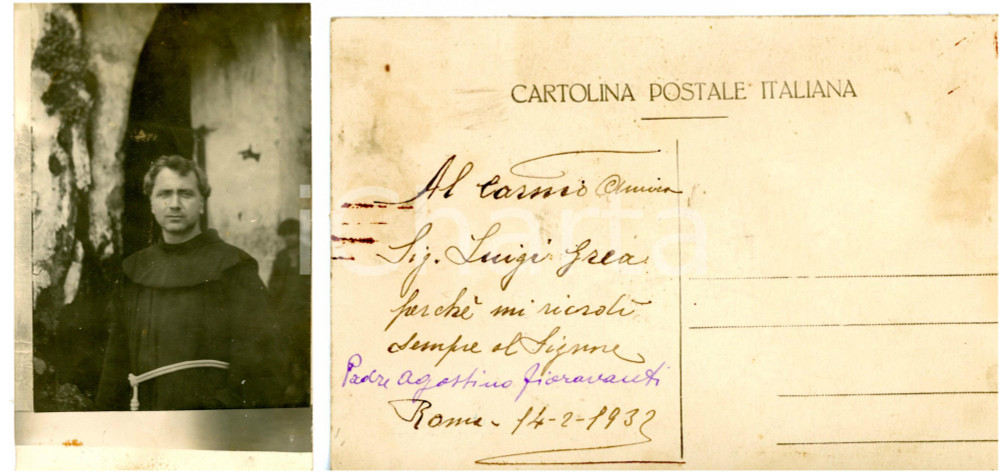 CARTOLINA POSTALE ITALIANA
Al
Sig. Luigi Grea
perchè mi ricordi
sempre al Signore
Padre Agostino Fioravanti
Roma - 14-2-1932
iCharta